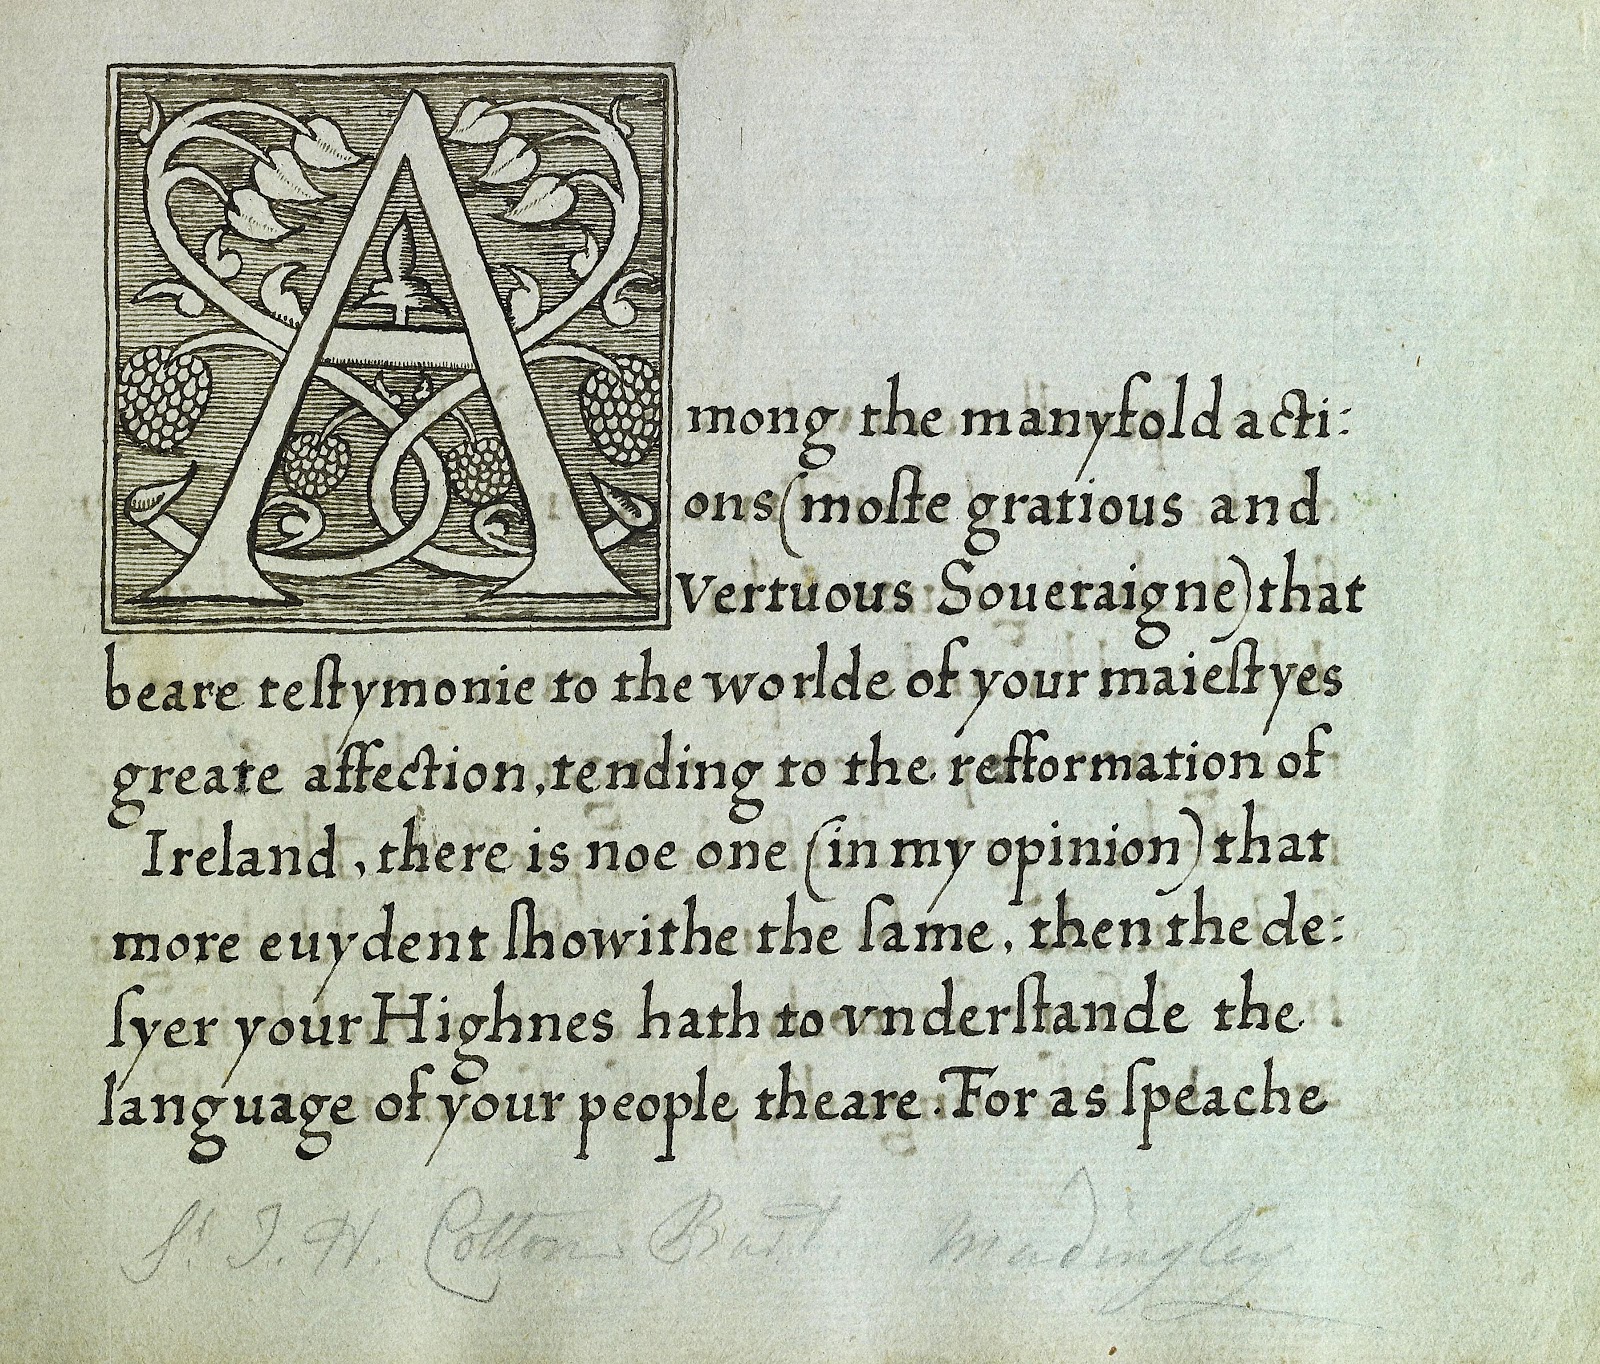 Among the manyfold acti:
ons (moſte gratious and
Vertuous Soueraigne) that
beare teſtymonie to the worlde of your maieſtyes
greate affection, tending to the refformation of
Ireland, there is noe one (in my opinion) that
more euydent ſhowithe the ſame, then the de:
ſyer your Highnes hath to vnderſtande the
language of your people theare. For as ſpeache
Sr. J. H. Cotton Bart. Madingley